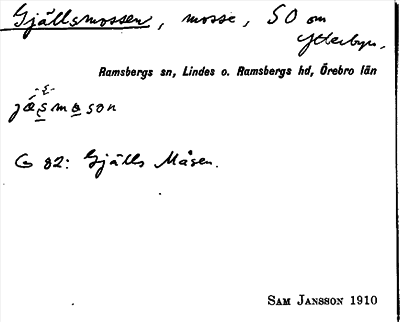 Gjällsmossen, mosse, SO om
Ytterbyn.
Ramsbergs sn, Lindes o. Ramsbergs hd, Örebro län
82: Gjälls Måsen.
SAM JANSSON 1910